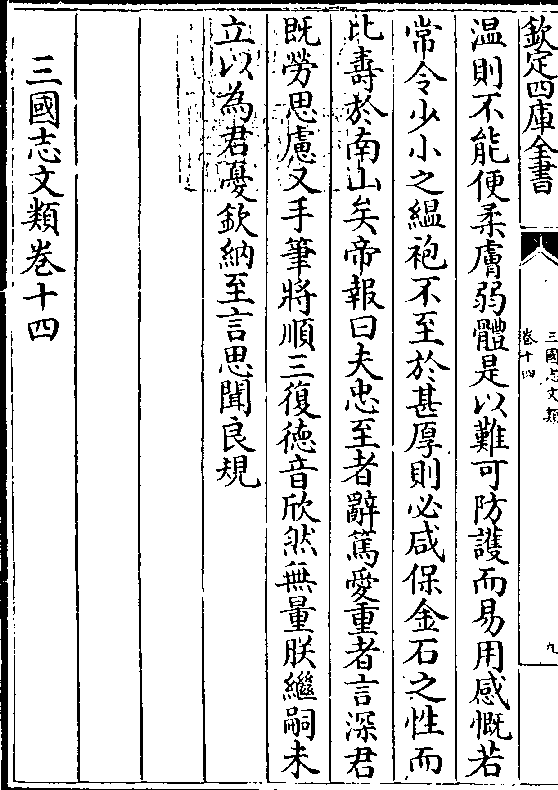 欽定四庫全書
三國志文類
卷十四
九
温則不能便柔膚弱體是以難可防護而易用感慨若
常令少小之緼袍不至於甚厚則必咸保金石之性而
比壽於南山矣帝報曰夫忠至者辭篤愛重者言深君
既勞思慮又手筆將順三復徳音欣然無量朕繼嗣未
立以為君憂欽納至言思聞良規
三國志文類卷十四